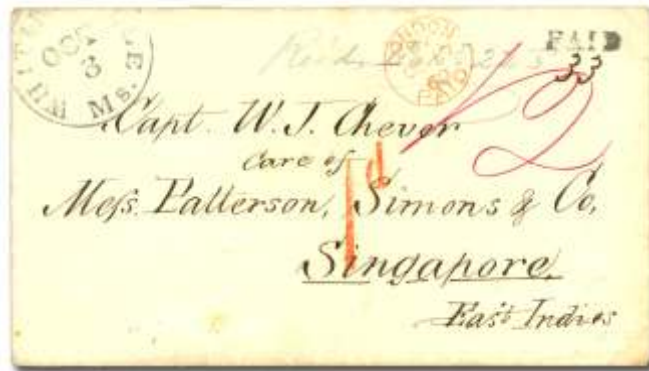 OCT
3
Ms.
LONDON
PAID
PAID
33
12
Capt. W. J. Chever
Care of
Mess. Patterson, Simons & Co,
1d
Singapore,
East Indies